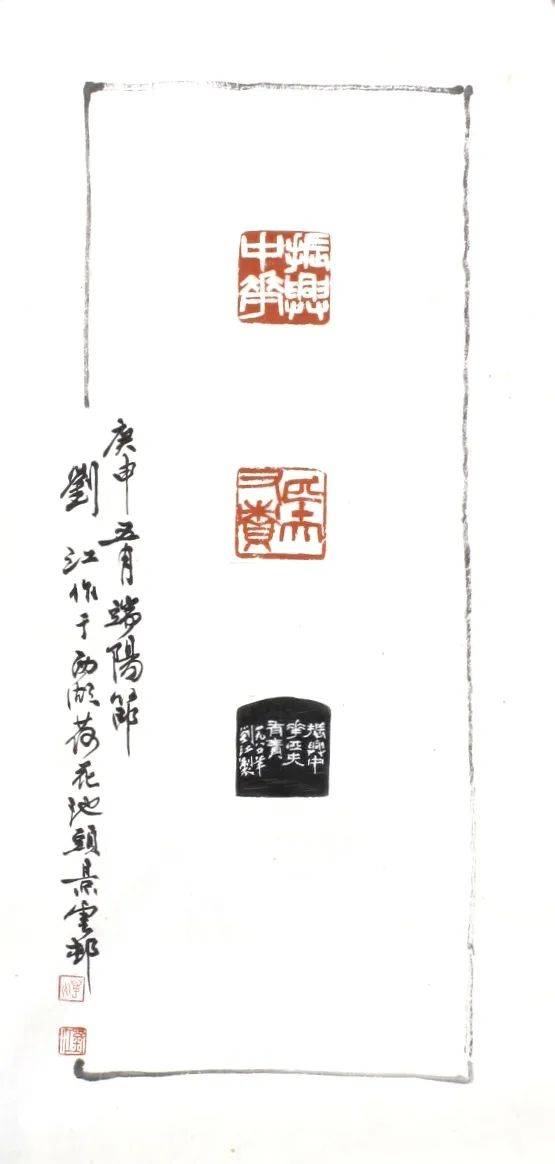 振興
中華
匹夫
有責
振興中
華匹夫
有責
一九八〇年
劉江製
庚申五月端陽節
劉江作于西湖荷花池頭景雲邨
劉江